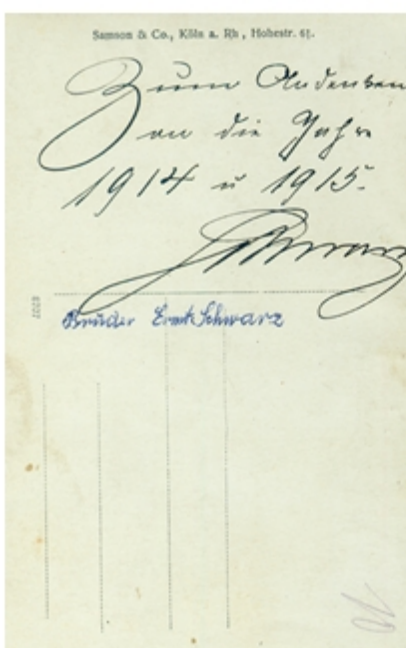 Samson & Co., Köln a. Rh., Hohestr. 61.
Zum Andenken
an die Jahre
1914 u 1915.
Schwarz
8207
Bruder Ernst Schwarz